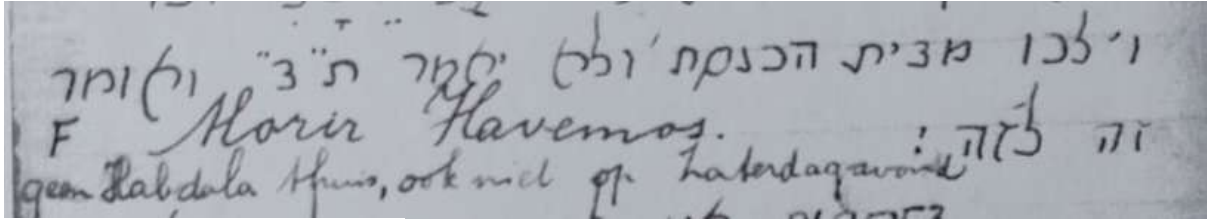 וילכו מבית הכנסת ולא יאמר ת"צ" ואומר
זה לזה: F Morir Havemos.
geen Habdala thuis, ook niet op Zaterdagavond